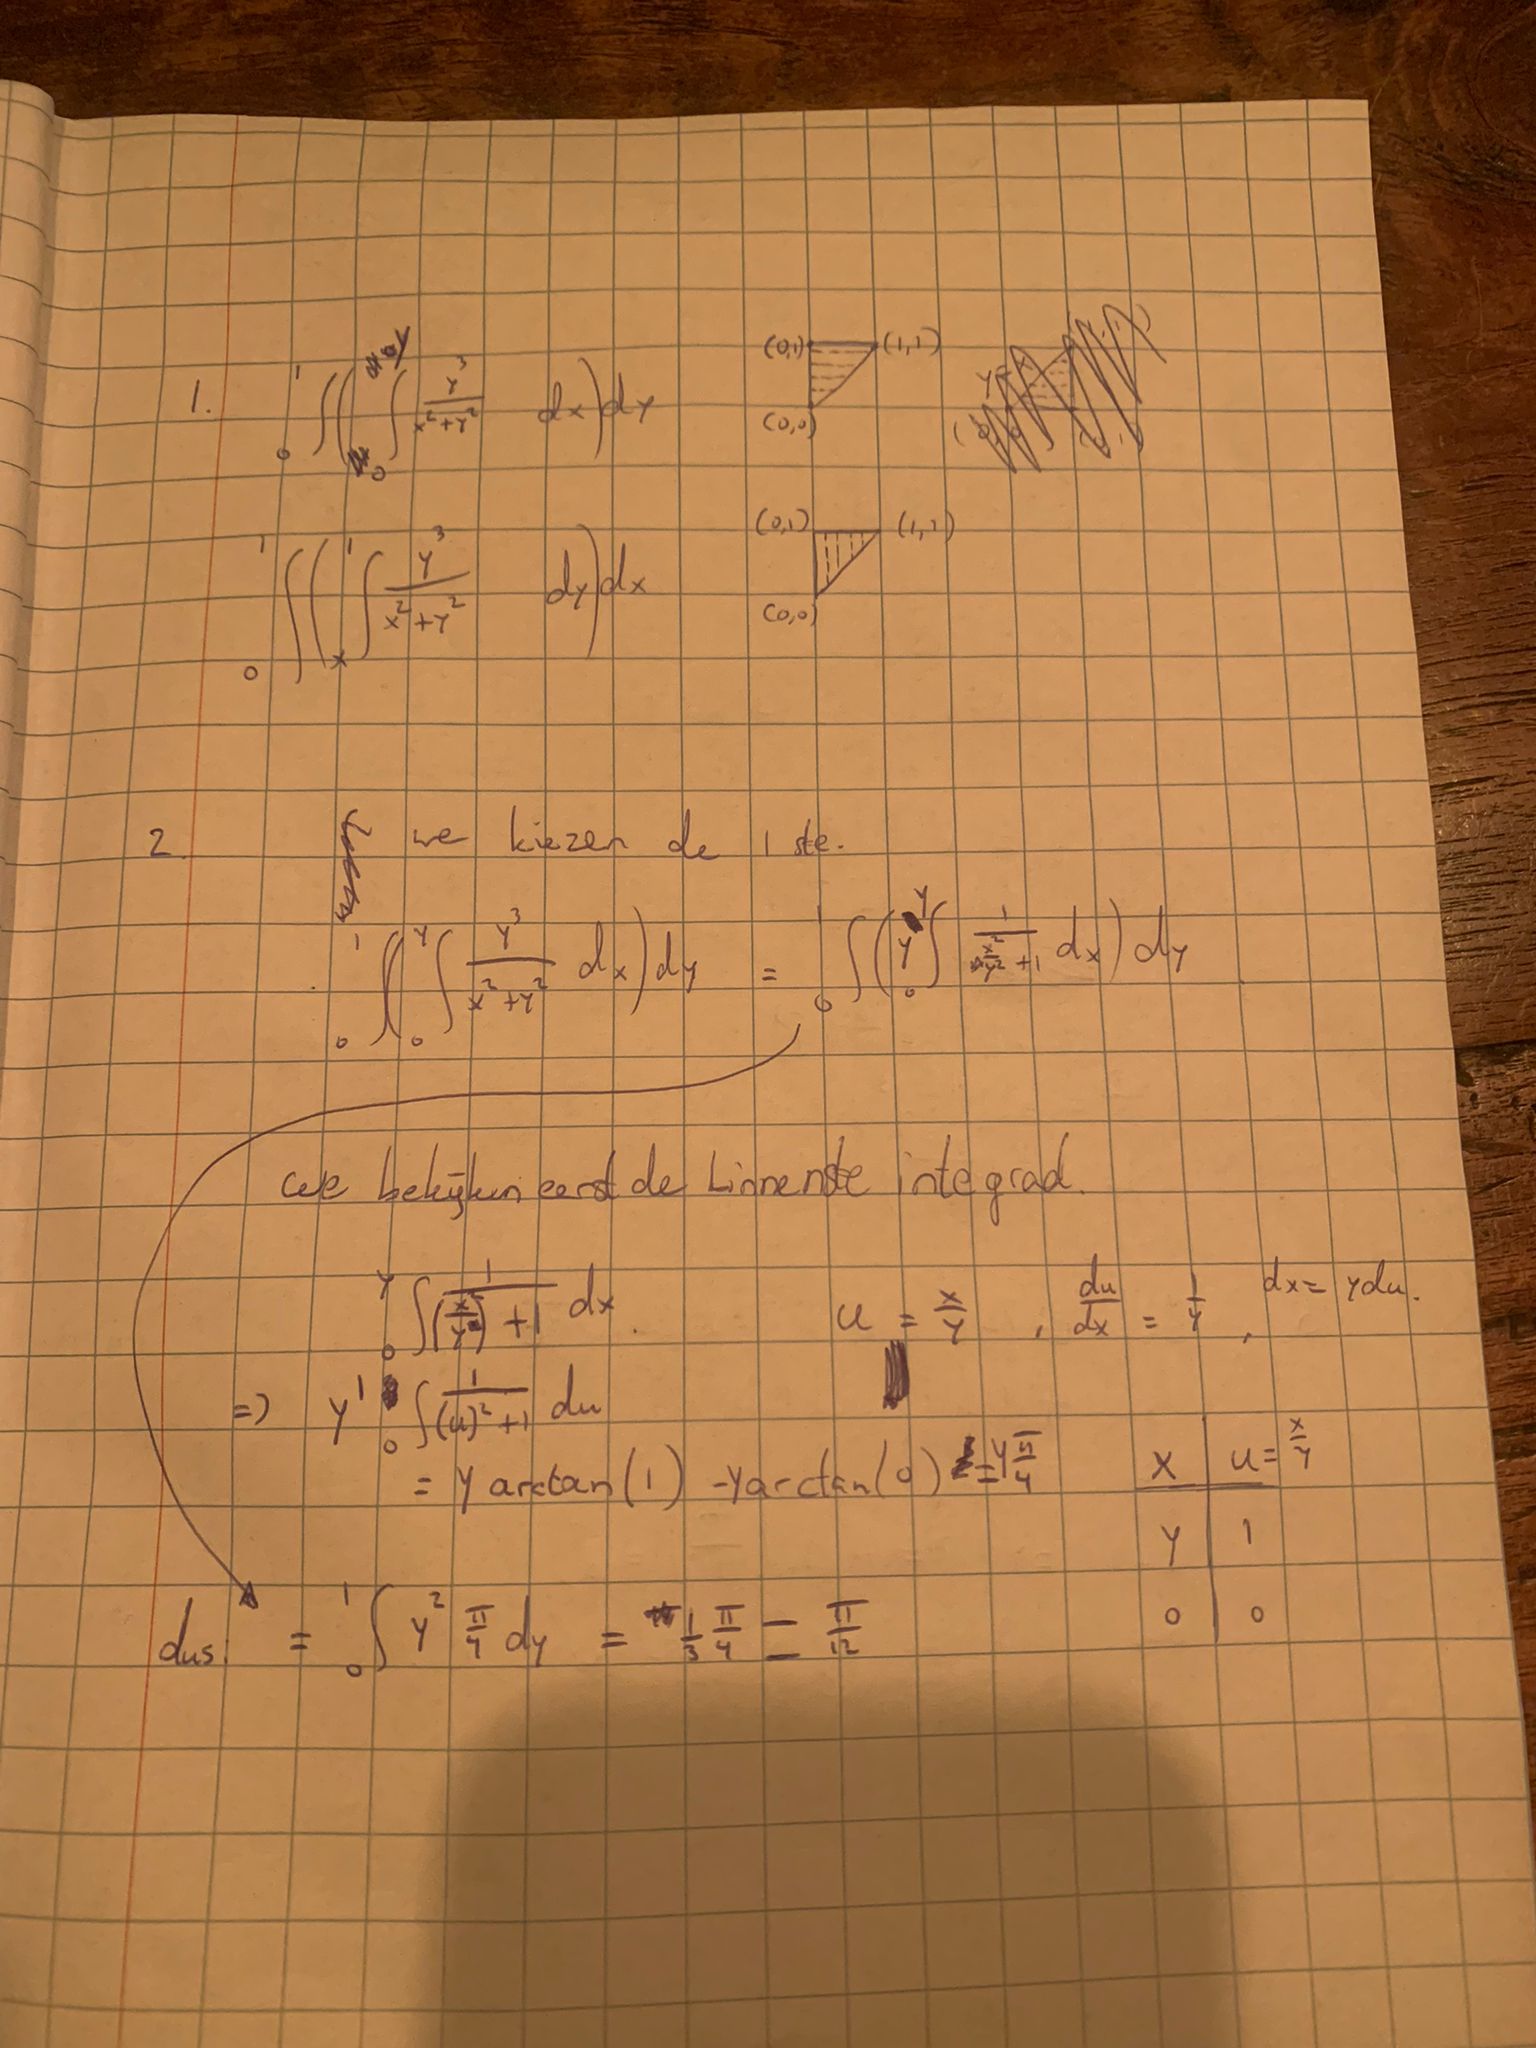 1. ₀∫¹ ( ₀∫ʸ y³/(x²+y²) dx ) dy (0,1) (1,1) (0,0)
₀∫¹ ( ₓ∫¹ y³/(x²+y²) dy ) dx (0,1) (1,1) (0,0)
2. we kiezen de 1ste.
₀∫¹ ( ₀∫ʸ y³/(x²+y²) dx ) dy = ₀∫¹ ( y ₀∫ʸ 1/(x²/y² + 1) dx ) dy
we bekijken eerst de binnenste integraal.
₀∫ʸ 1/((x/y)² + 1) dx. u = x/y , du/dx = 1/y , dx = y du.
=> y ₀∫¹ 1/((u)² + 1) du
= y arctan(1) - y arctan(0) = y π/4
x | u = x/y
y | 1
0 | 0
dus: = ₀∫¹ y² π/4 dy = 1/3 π/4 = π/12